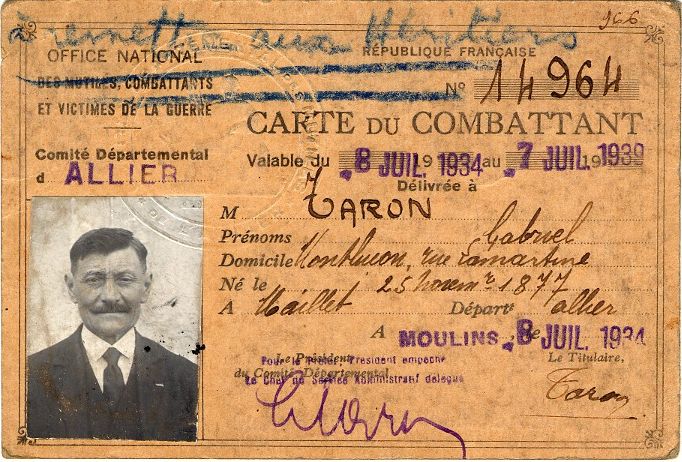 à remettre aux Héritiers
966
OFFICE NATIONAL
DES MUTILÉS, COMBATTANTS
ET VICTIMES DE LA GUERRE
Comité Départemental
d ALLIER
RÉPUBLIQUE FRANÇAISE
No 14964
CARTE DU COMBATTANT
Valable du 8 JUIL. 1934 au 7 JUIL. 1939
Délivrée à
M TARON
Prénoms Gabriel
Domicile Montluçon, rue Lamartine
Né le 25 novem re 1877
A Maillet Départt allier
A MOULINS, le 8 JUIL. 1934
Le Président
du Comité Départemental.
Pour le Préfet, Président empêché
Le Chef du Service Administratif délégué
Le Titulaire,
Taron